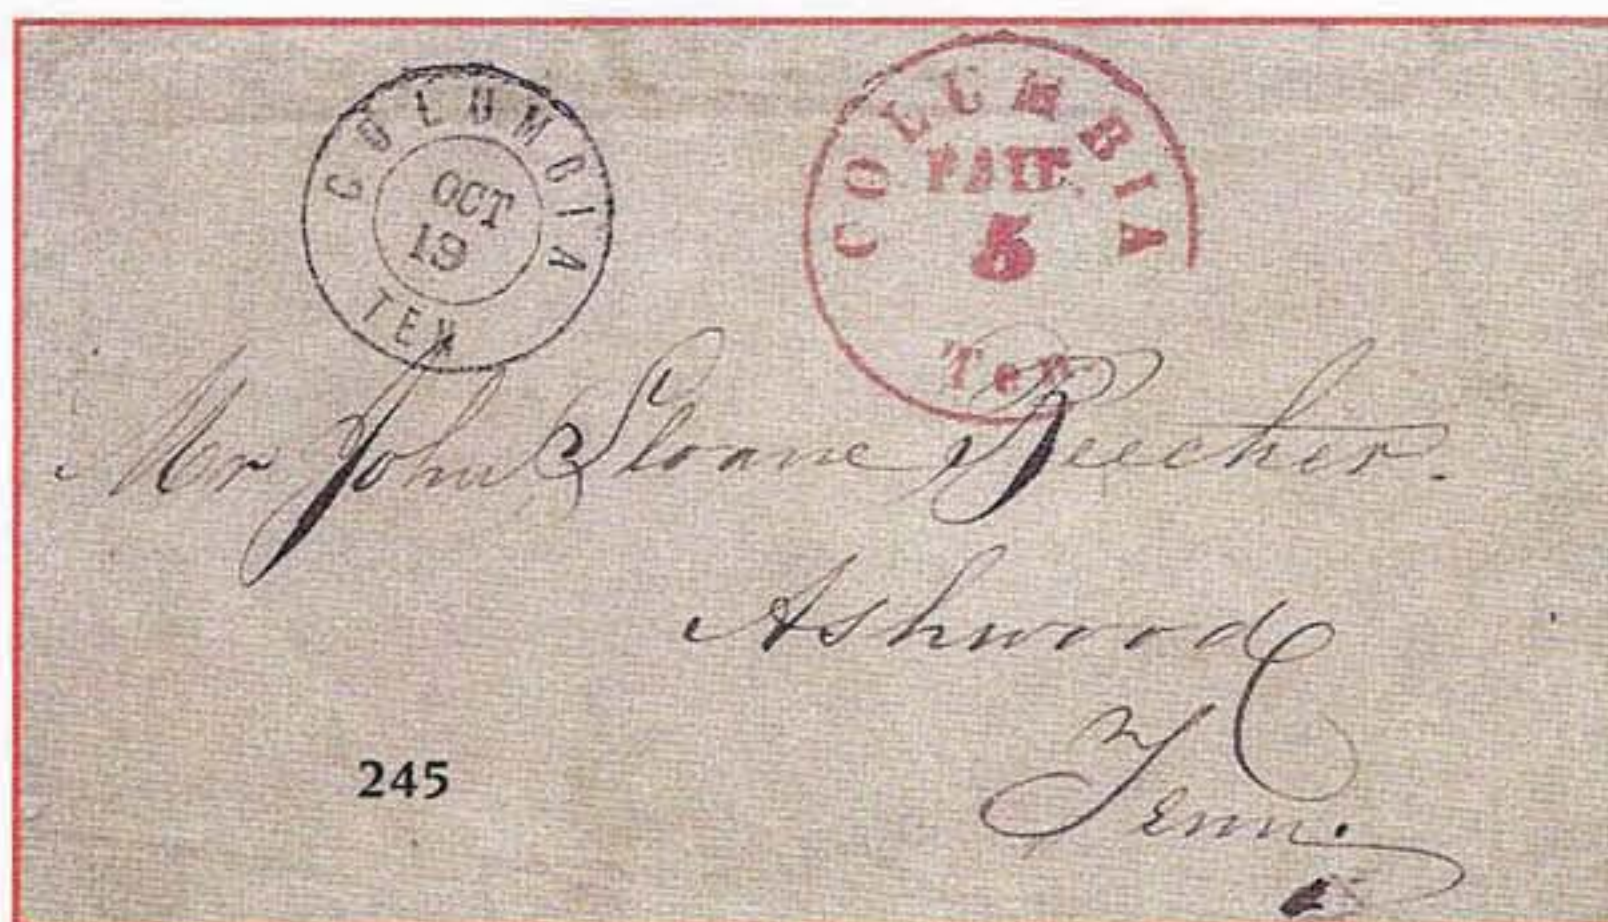 COLUMBIA
OCT
19
TEN
COLUMBIA
PAID
5
Ten
Mr John Sloane Beecher.
Ashwood
Tenn.
245